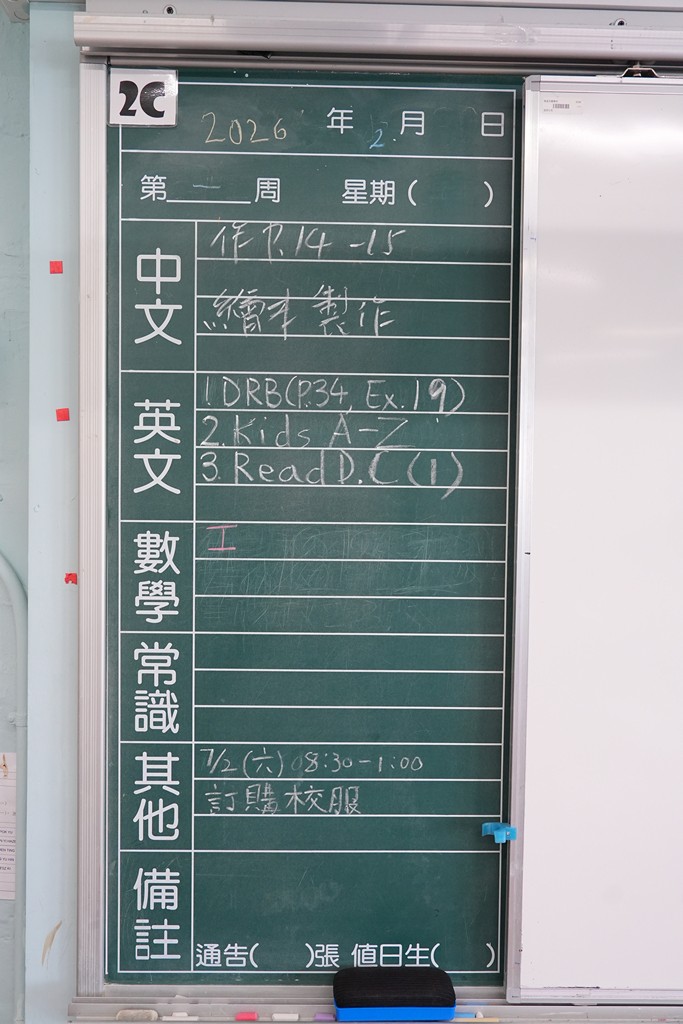 2C
2026 年 2 月 日
第 一 周 星期( )
中文
作 P.14-15
繪本 製作
英文
1.DRB(P.34, Ex.19)
2.Kids A-Z
3.Read D.C(1)
數學
工
常識
其他
7/2(六) 08:30-1:00
訂購校服
備註
通告( )張 值日生( )